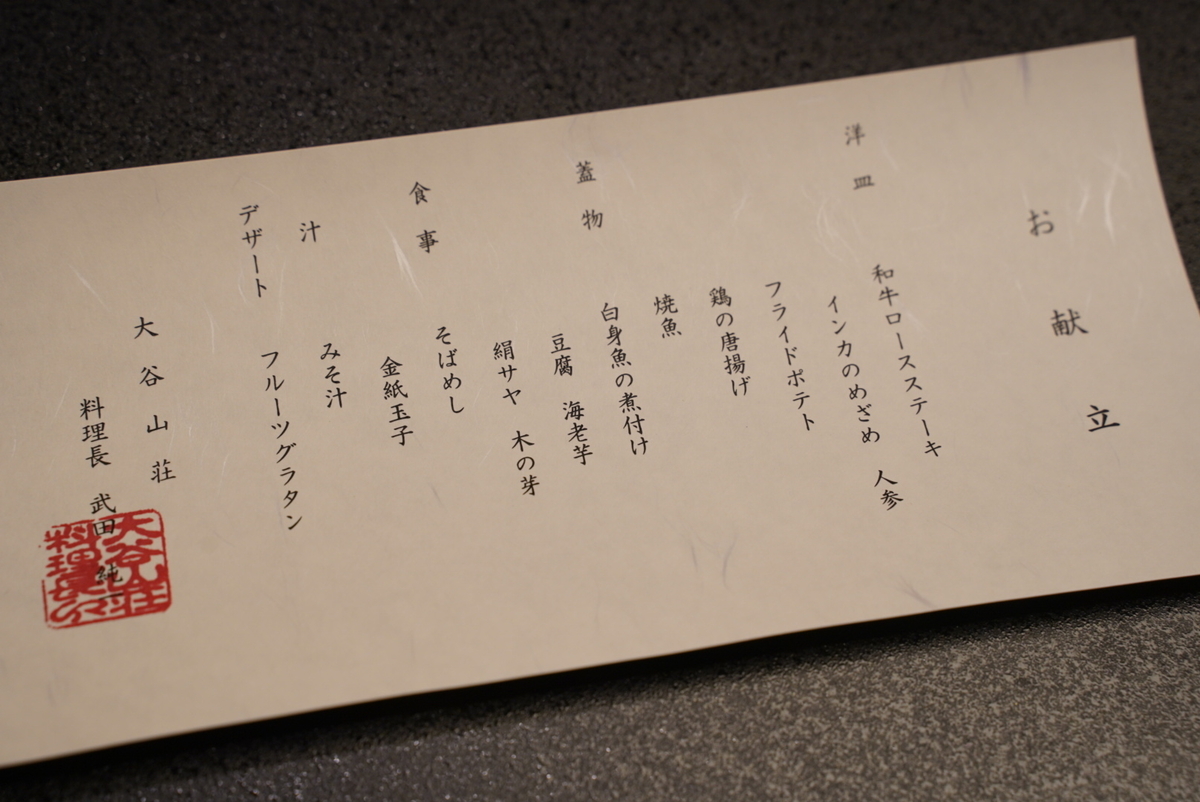 お献立
洋皿
和牛ロースステーキ
インカのめざめ 人参
フライドポテト
鶏の唐揚げ
焼魚
蓋物
白身魚の煮付け
豆腐 海老芋
絹サヤ 木の芽
食事
そばめし
金紙玉子
汁
みそ汁
デザート
フルーツグラタン
大谷山荘
料理長 武田 純一
大谷山荘
料理長